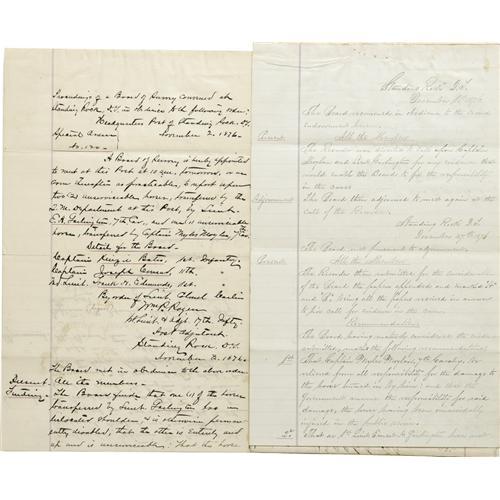 Proceedings of a Board of Survey convened at
Standing Rock, D.T. in obedience to the following order:
Headquarters Post of Standing Rock, D.T.
Special Orders
November 2, 1876.
No.
A Board of Survey is hereby appointed
to meet at this Post at 10 a.m. tomorrow, or as
soon thereafter as practicable, to report upon
two (2) unserviceable horses, transferred by the
Q.M. Department at this Post, by Lieut.
E.A. Garlington, 7th Cav., and one unserviceable
horse, transferred by Captain Myles Moylan, 7th Cav.
Detail for the Board.
Captain Kinzie Bates, 1st. Infantry.
Captain Joseph Conrad, 11th.
By order of Lieut. Colonel Carlin
Wm. P. Rogers
1st Lieut. & Adjt. 17th Infty.
Post Adjutant
Standing Rock, D.T.
November 3, 1876.
The Board met in obedience to the above order.
Present: All the members.
Finding: The Board finds that one (1) of the horses
transferred by Lieut. Garlington has a
dislocated shoulder, & is otherwise permanently
disabled, that the other is entirely used
up and is unserviceable: That the horse
Standing Rock D.T.
December
The Board reconvened in obedience to the above
endorsement
Present
All the Members
The Recorder was directed to call upon Captain
Moylan and Lieut. Garlington for any evidence that
would enable the Board to fix the responsibility
in the case
Adjournment
The Board then adjourned to meet again at the
call of the Recorder.
Standing Rock D.T.
December 27th 1876
The Board met pursuant to adjournment.
Present
All the Members
The Recorder then submitted for the consideration
of the Board the papers appended and marked
being all the papers received in answer
to his call for evidence in the case
Recommendation
The Board having maturely considered the evidence
submitted makes the following recommendations
1st
That Captain Myles Moylan, 7th Cavalry, be
relieved from all responsibility for the damage to
the horse turned in by him, and that the
Government assume the responsibility for said
damage, the horse having been unavoidably
injured in the public service.
2nd
That as 1st Lieut Ernest A. Garlington has not